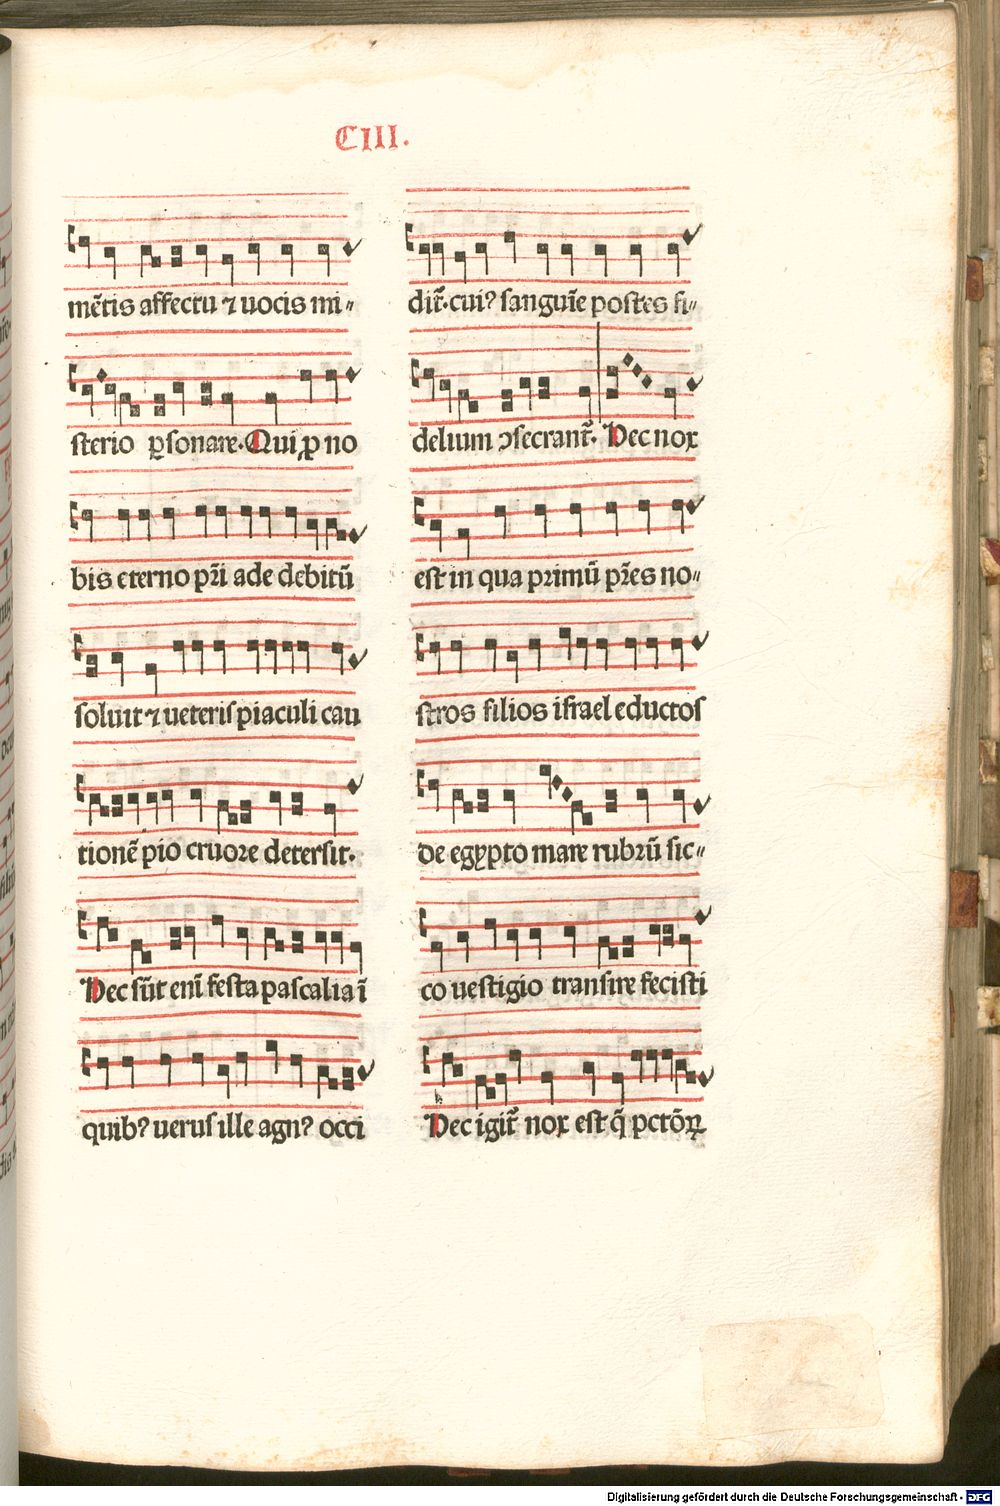 CIII.
mētis affectu ⁊ uocis mi„
sterio ꝑsonare. Qui ꝓ no
bis eterno pr̄i ade debitū
soluit ⁊ ueteris piaculi cau
tionē pio cruore detersit.
Hec sūt enī festa pascalia ī
quib⁹ uerus ille agn⁹ occi
dit᷑. cui⁹ sanguīe postes fi„
delium ↄsecrant᷑. Hec nox
est in qua primū pr̄es no„
stros filios israel eductos
de egypto mare rubrū sic„
co uestigio transire fecisti
Hec igit᷑ nox est q̄ pctōꝝ
Digitalisierung gefördert durch die Deutsche Forschungsgemeinschaft - DFG